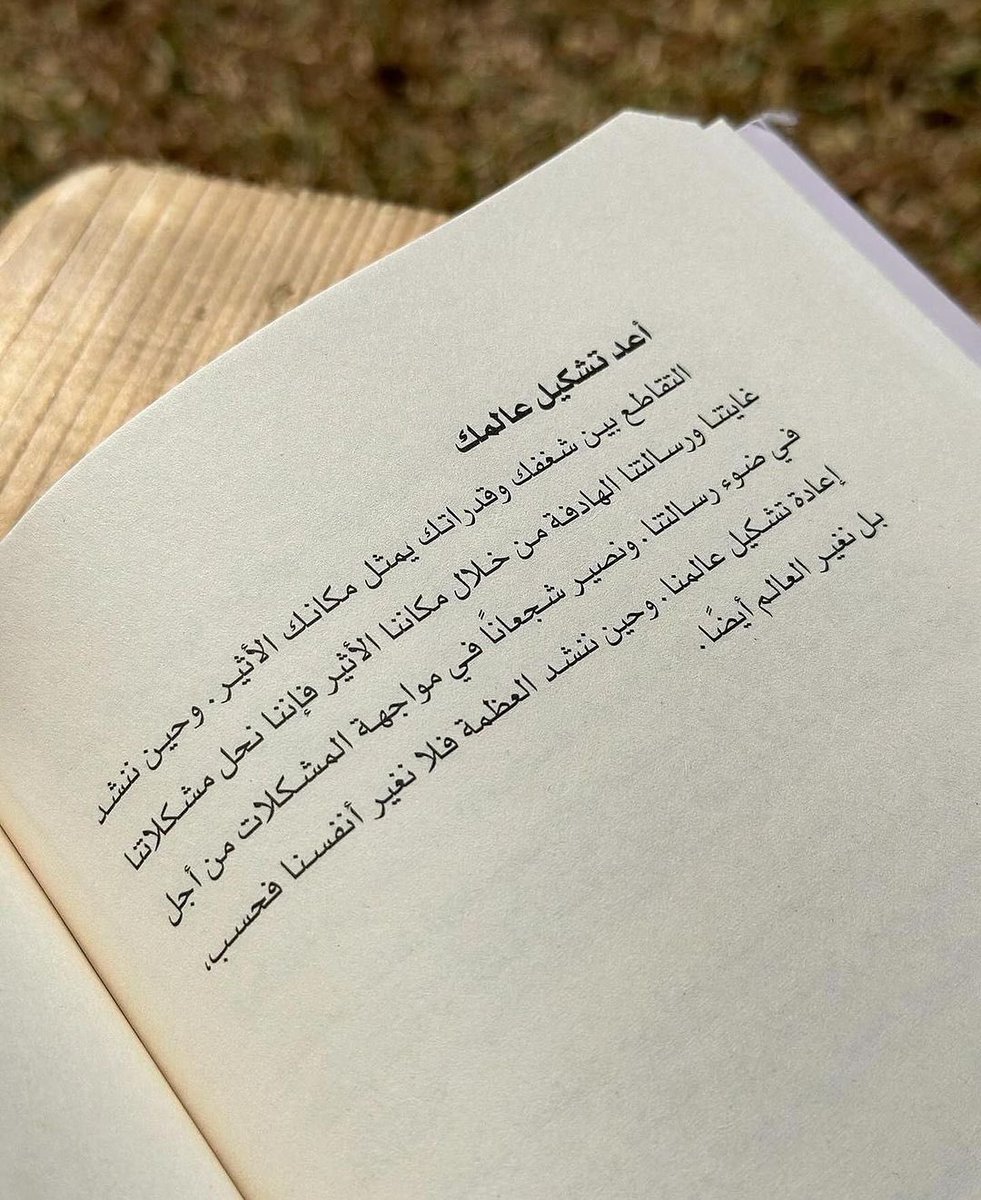 أعد تشكيل عالمك
التقاطع بين شغفك وقدراتك يمثل مكانك الأثير. وحين ننشد
غايتنا ورسالتنا الهادفة من خلال مكاننا الأثير فإننا نحل مشكلاتنا
في ضوء رسالتنا. ونصير شجعانًا في مواجهة المشكلات من أجل
إعادة تشكيل عالمنا. وحين ننشد العظمة فلا نغير أنفسنا فحسب،
بل نغير العالم أيضًا.